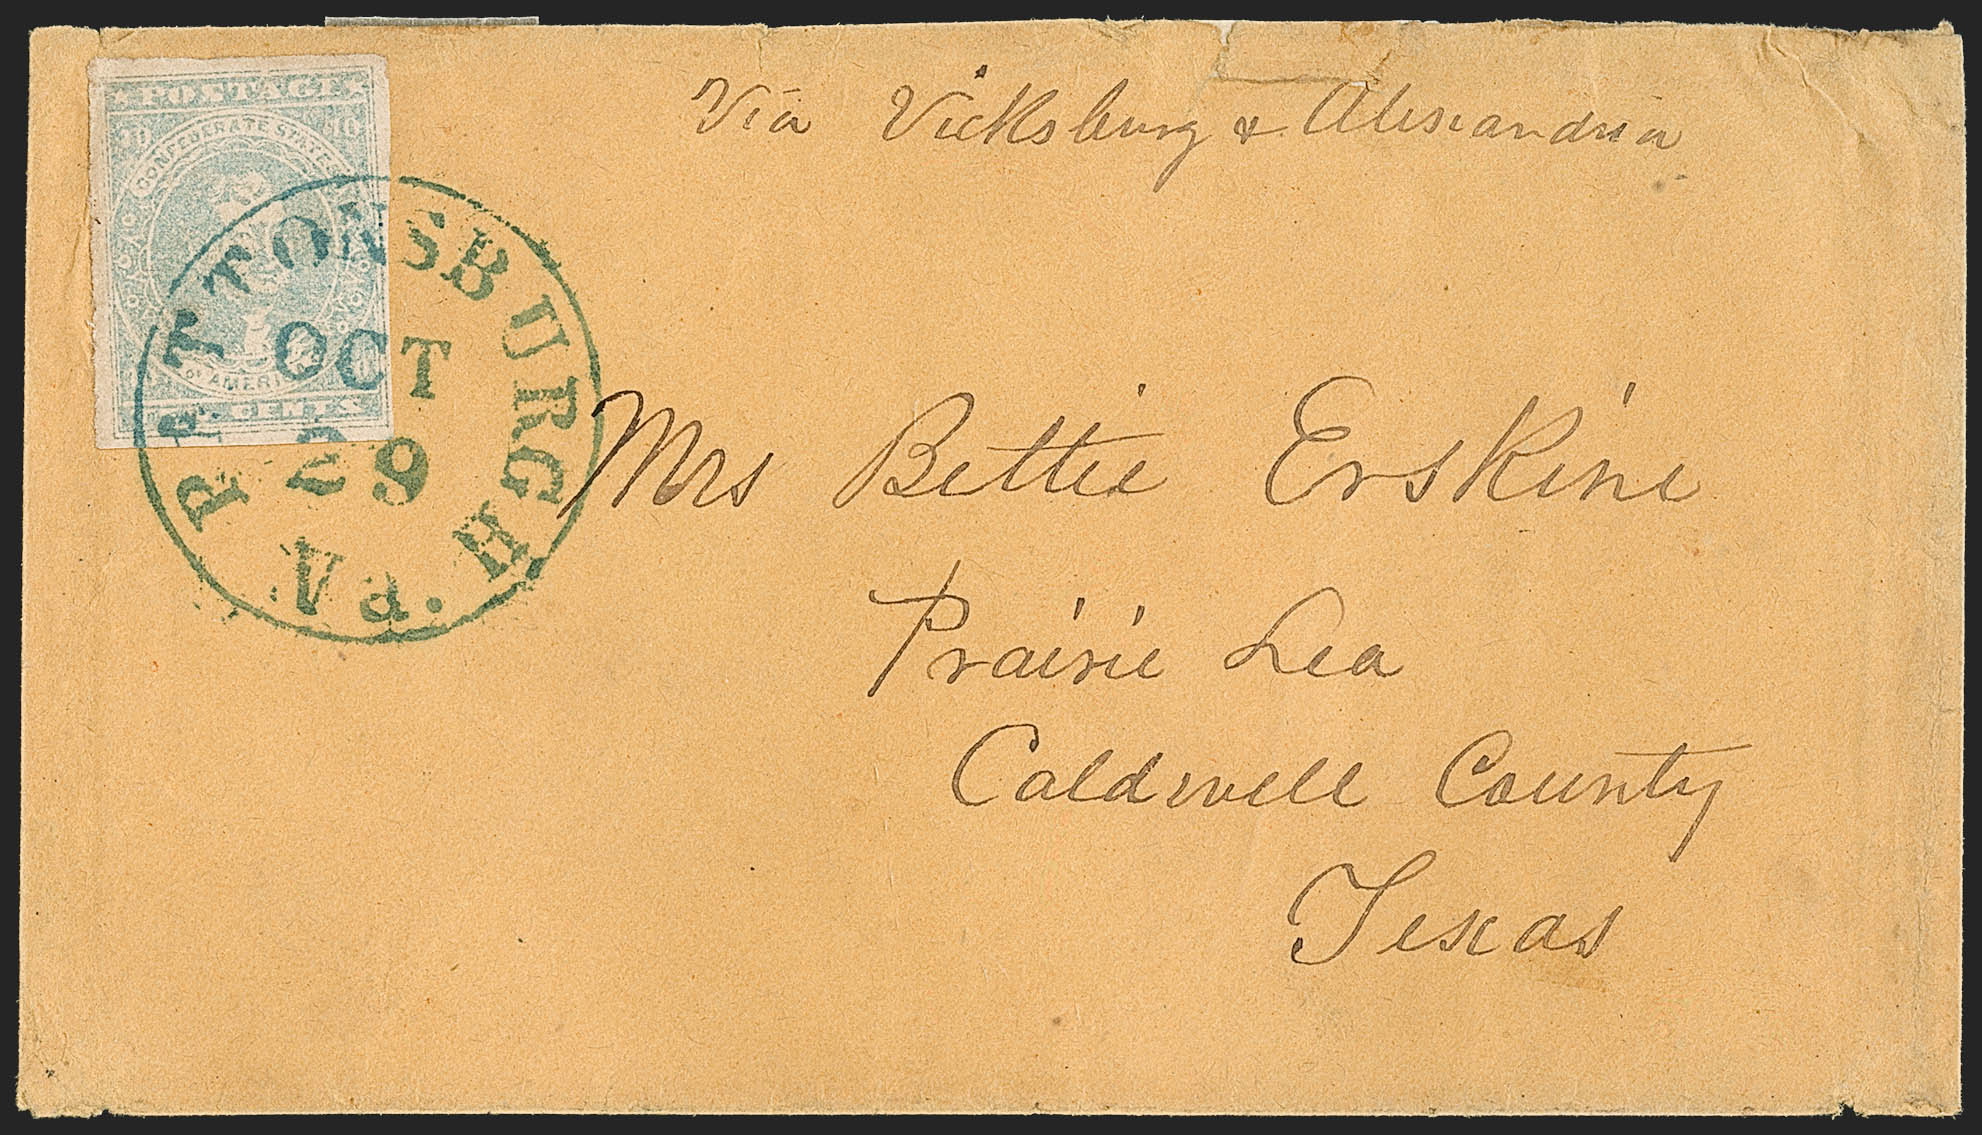 Via Vicksburg & Alexandria
POSTAGE
10 10
CONFEDERATE STATES
OF AMERICA
CENTS
PATTONSBURGH
OCT
29
Va.
Mrs Bettie Erskine
Prairie Lea
Caldwell County
Texas